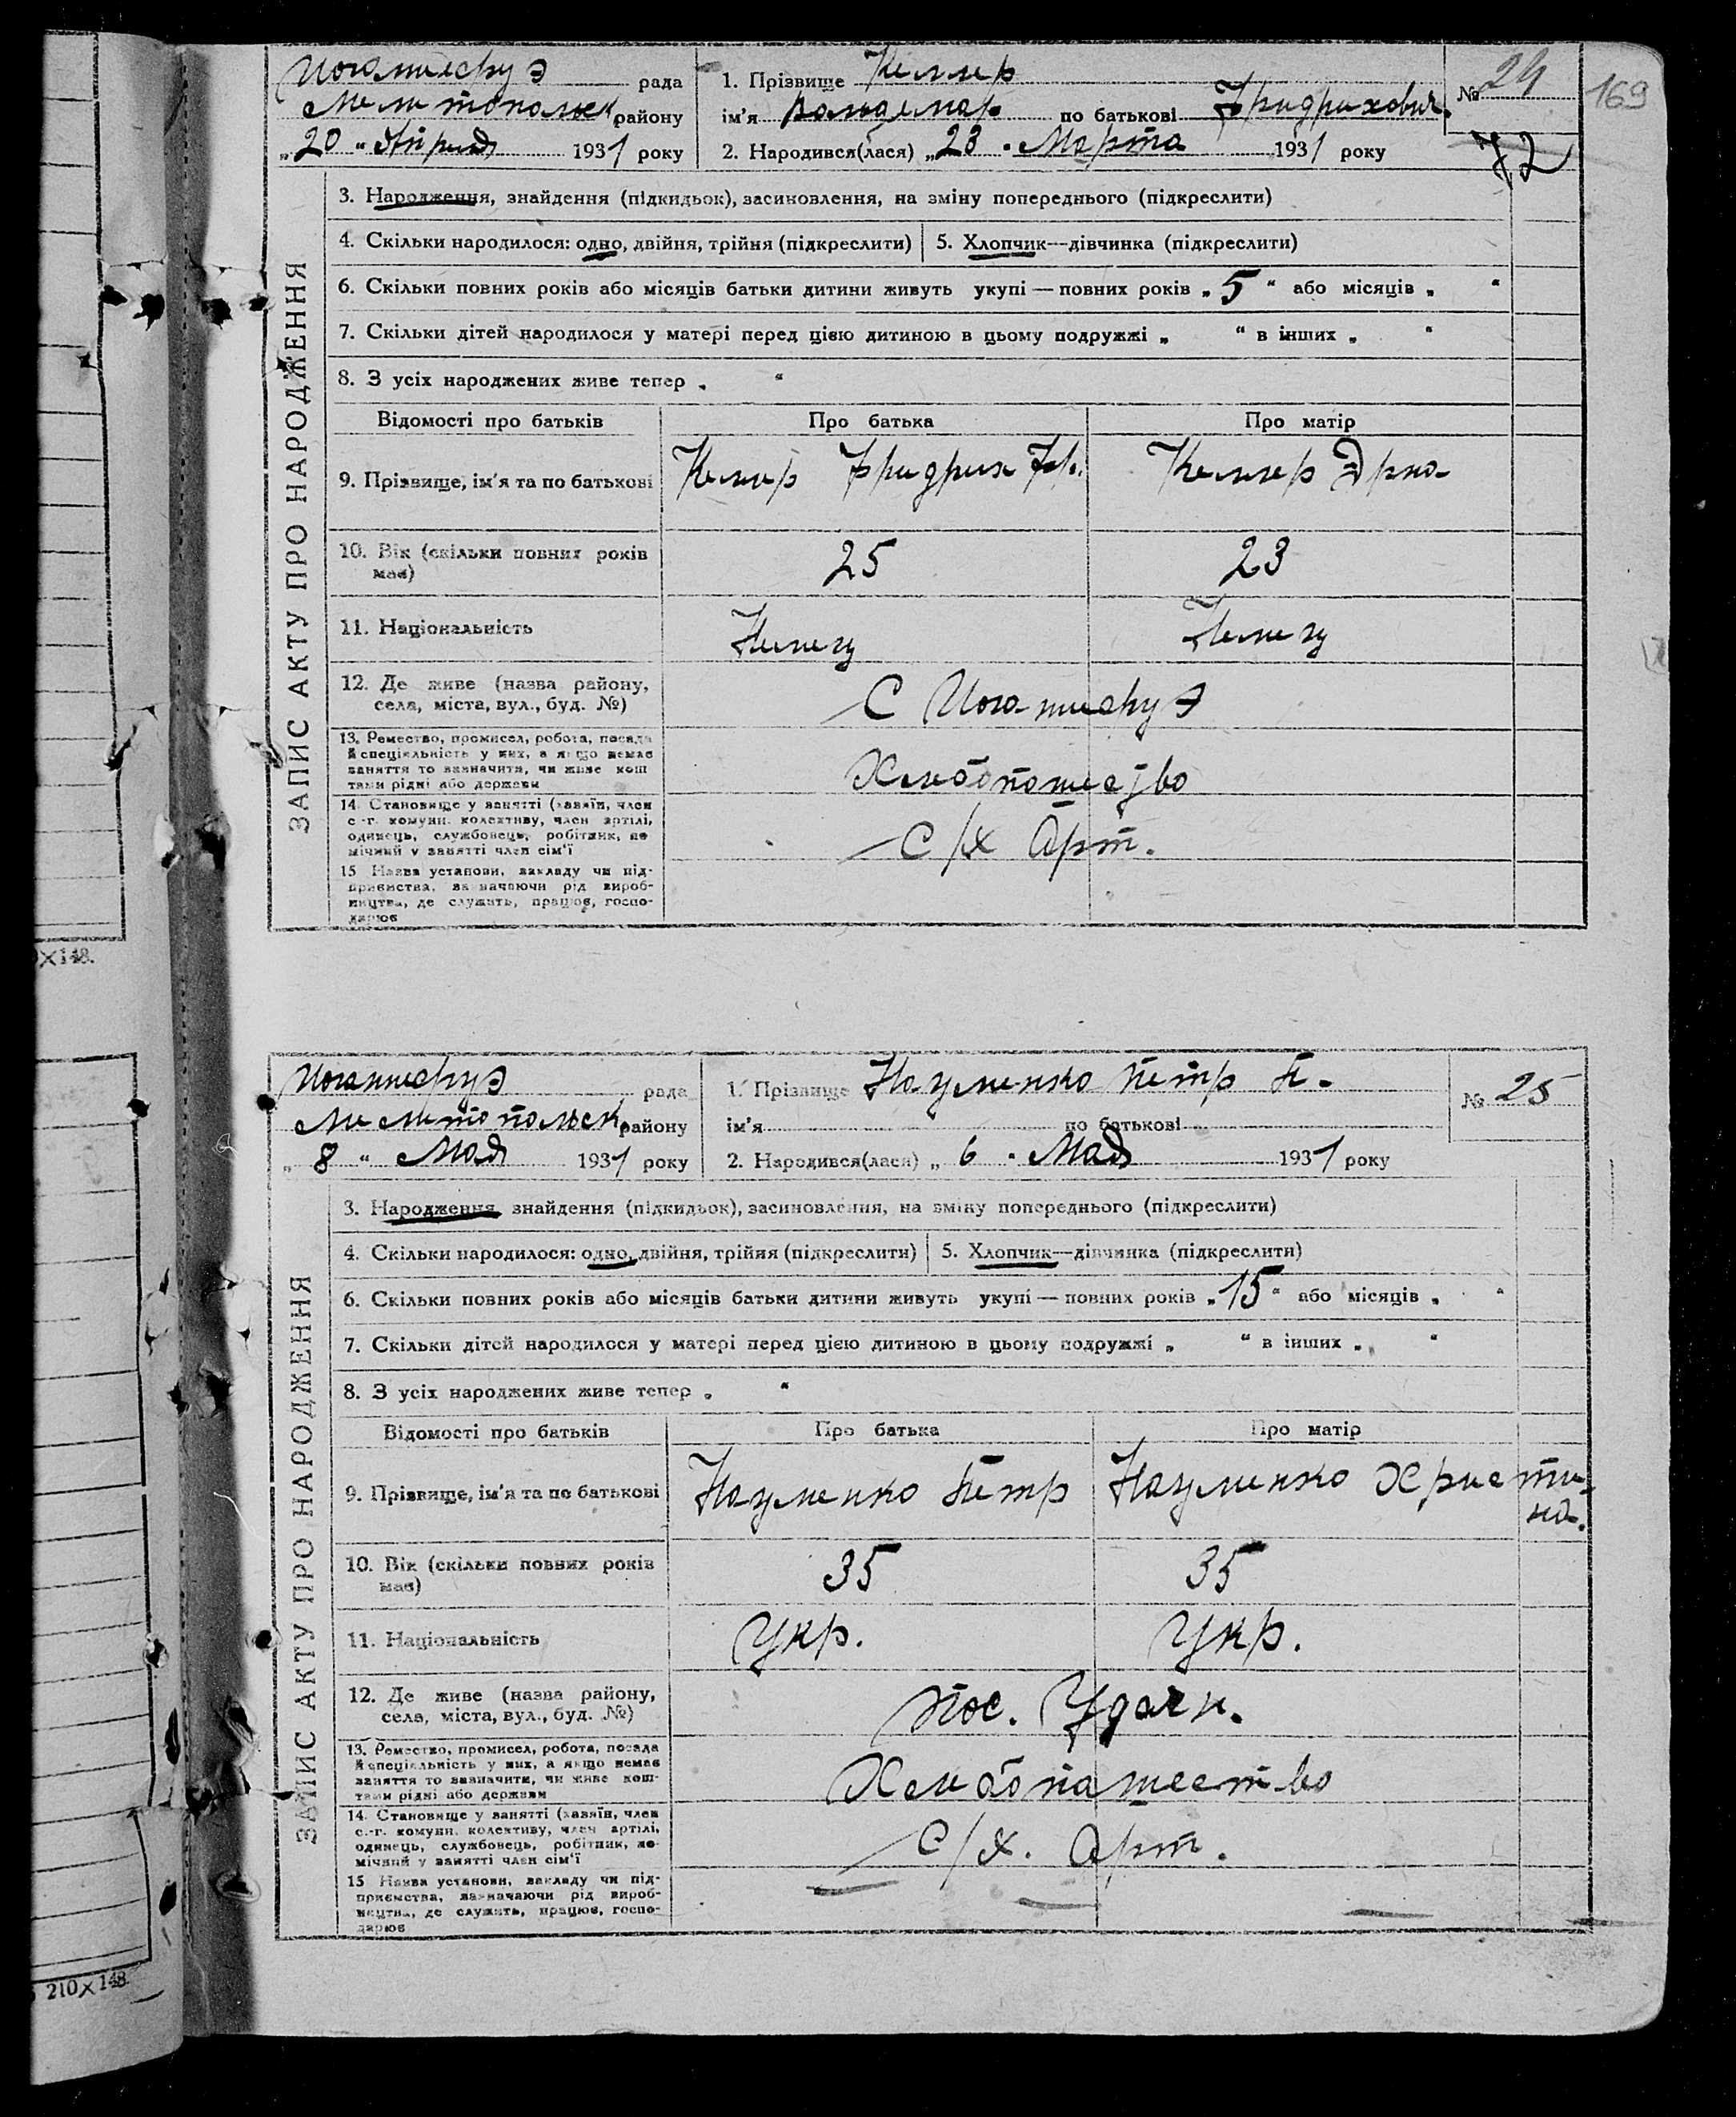 169
Иоганнесруэ рада
Мелитопольск району
„20 “ Апреля 1931 року
1. Прізвище Келлер
ім'я Вольдемар по батькові Фридрихович.
2. Народився(лася) „23 “ Марта 1931 року
№ 24
72
ЗАПИС АКТУ ПРО НАРОДЖЕННЯ
3. Народження, знайдення (підкидьок), засиновлення, на зміну попереднього (підкреслити)
4. Скільки народилося: одно, двійня, трійня (підкреслити) 5. Хлопчик—дівчинка (підкреслити)
6. Скільки повних років або місяців батьки дитини живуть укупі — повних років „5“ або місяців „ “
7. Скільки дітей народилося у матері перед цією дитиною в цьому подружжі „ “ в інших „ “
8. З усіх народжених живе тепер „ “
Відомості про батьків Про батька Про матір
9. Прізвище, ім'я та по батькові Келлер Фридрих Фр. Келлер Эрна
10. Вік (скільки повних років має) 25 23
11. Національність Немец Немец
12. Де живе (назва району,
села, міста, вул., буд. №)
С Иоганнесруэ
13. Ремество, промисел, робота, посада
й спеціяльність у них, а якщо немає
заняття то зазначити, чи живе кош
тами рідні або держави
Хлебопашество
14. Становище у занятті (хазяїн, член
с.-г. комуни. колективу, член артілі,
одинець, службовець, робітник, по
мічний у занятті член сім'ї
С/х Арт.
15 Назва установи, закладу чи під-
приємства, зазначаючи рід вироб-
ництва, де служить, працює, госпо-
дарює
×148.
Иоганнесруэ рада
Мелитопольск. району
„ 8 “ Мая 1931 року
1. Прізвище Науменко Петр П.
ім'я по батькові
2. Народився(лася) „ 6 “ Мая 1931 року
№ 25
ЗАПИС АКТУ ПРО НАРОДЖЕННЯ
3. Народження знайдення (підкидьок), засиновлення, на зміну попереднього (підкреслити)
4. Скільки народилося: одно, двійня, трійня (підкреслити) 5. Хлопчик—дівчинка (підкреслити)
6. Скільки повних років або місяців батьки дитини живуть укупі — повних років „15“ або місяців „ “
7. Скільки дітей народилося у матері перед цією дитиною в цьому подружжі „ “ в інших „ “
8. З усіх народжених живе тепер „ “
Відомості про батьків Про батька Про матір
9. Прізвище, ім'я та по батькові Науменко Петр Науменко Христи-
на.
10. Вік (скільки повних років має) 35 35
11. Національність Укр. Укр.
12. Де живе (назва району,
села, міста, вул., буд. №)
Пос. Удачн.
13. Ремество, промисел, робота, посада
й спеціяльність у них, а якщо немає
заняття то зазначити, чи живе кош-
тами рідні або держави
Хлебопашество
14. Становище у занятті (хазяїн, член
с.-г. комуни. колективу, член артілі,
одинець, службовець, робітник, по
мічний у занятті член сім'ї
С/х. Арт.
15 Назва установи, закладу чи під-
приємства, зазначаючи рід вироб-
ництва, де служить, працює, госпо-
дарює
210×148.